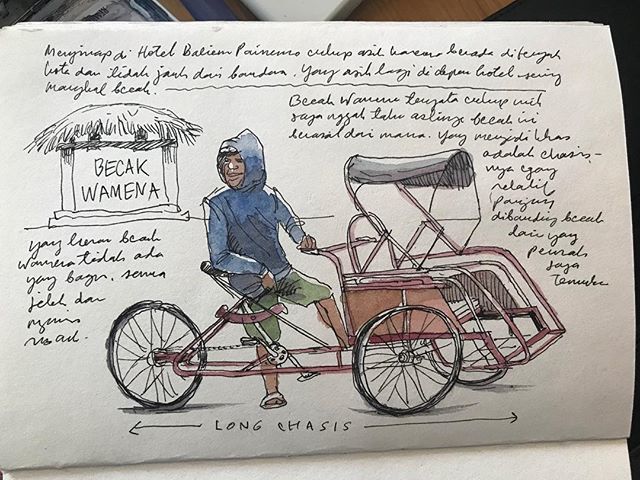 Menginap di Hotel Baliem Pilamo cukup asik karena berada di tengah
kota dan tidak jauh dari bandara. Yang asik lagi di depan hotel sering
mangkal becak.
Becak Wamena ternyata cukup unik
saya nggak tahu aslinya becak ini
berasal dari mana. Yang menjadi khas
adalah chasis-
nya yang
relatif
panjang
dibanding becak
lain yang
pernah
saya
temui
BECAK
WAMENA
yang heran becak
Wamena tidak ada
yang bagus, semua
jelek dan
nyaris
rusak.
LONG CHASIS